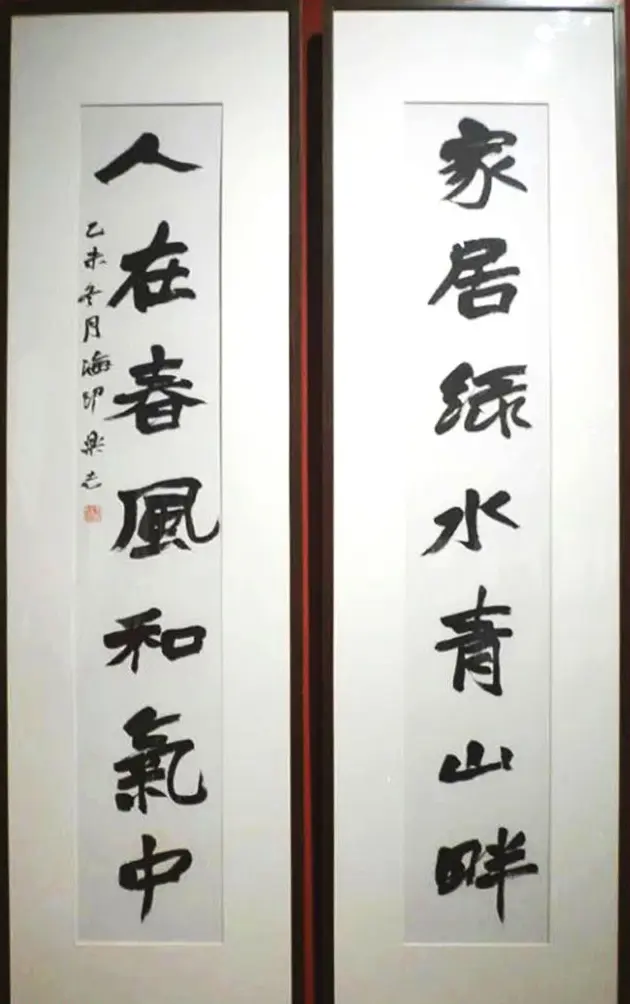 家居绿水青山畔
人在春風和氣中
乙未冬月海印樂志